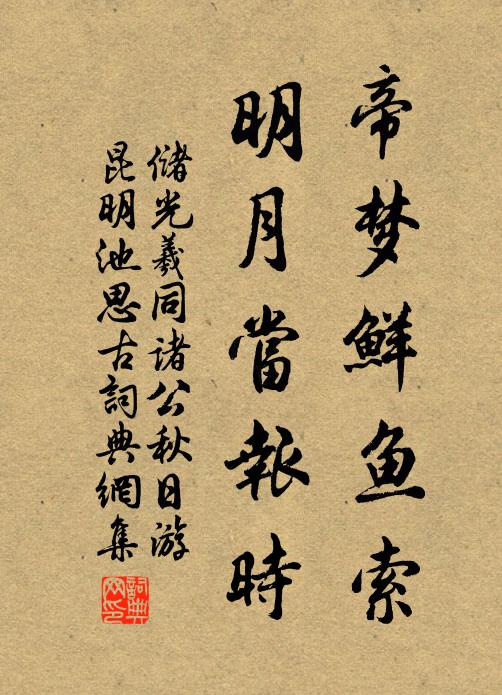 帝梦鲜鱼索
明月當報時
儲光羲同諸公秋日游
昆明池思古詞典網集
詞典
网印